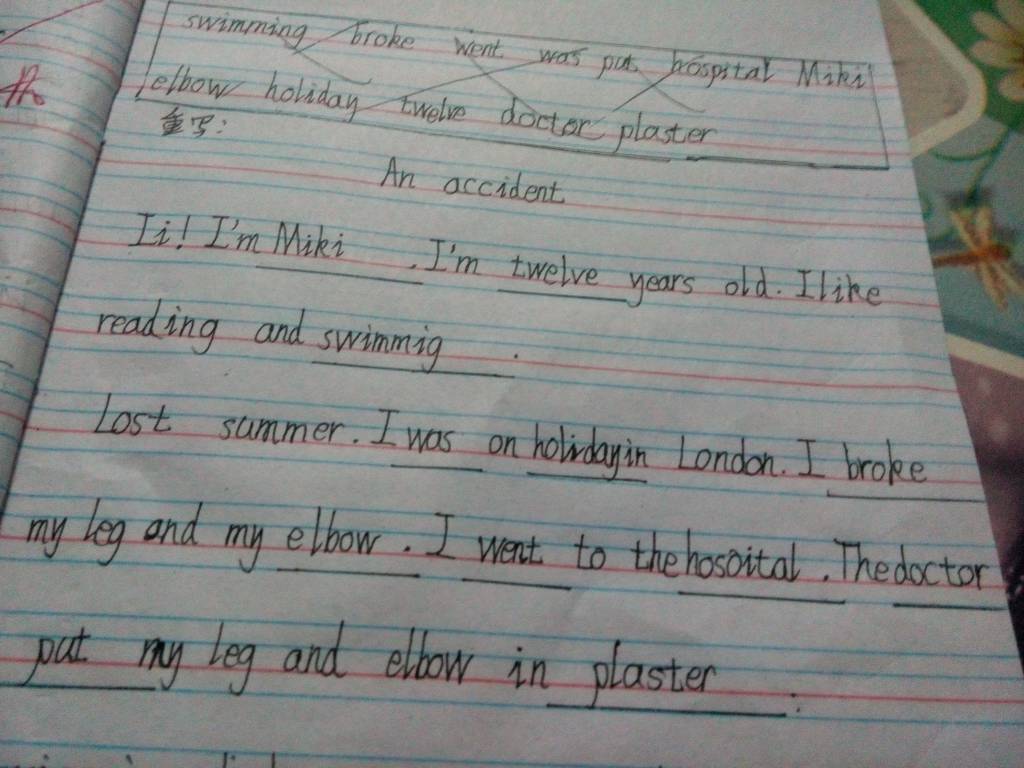 swimming broke went was put hospital Miki
elbow holiday twelve doctor plaster
重写:
An accident
Ii! I'm Miki . I'm twelve years old. I like
reading and swimmig .
Lost summer. I was on holiday in London. I broke
my leg and my elbow. I went to the hosoital. The doctor
put my leg and elbow in plaster.